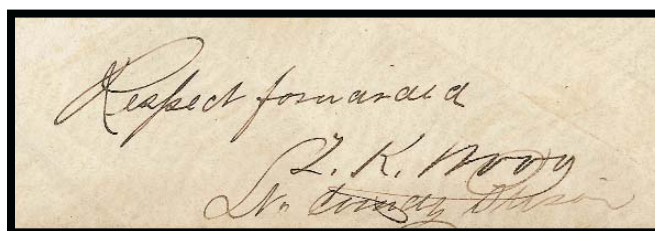 Respect forwarded
L. K. Wood
Lt. Comdg Prison